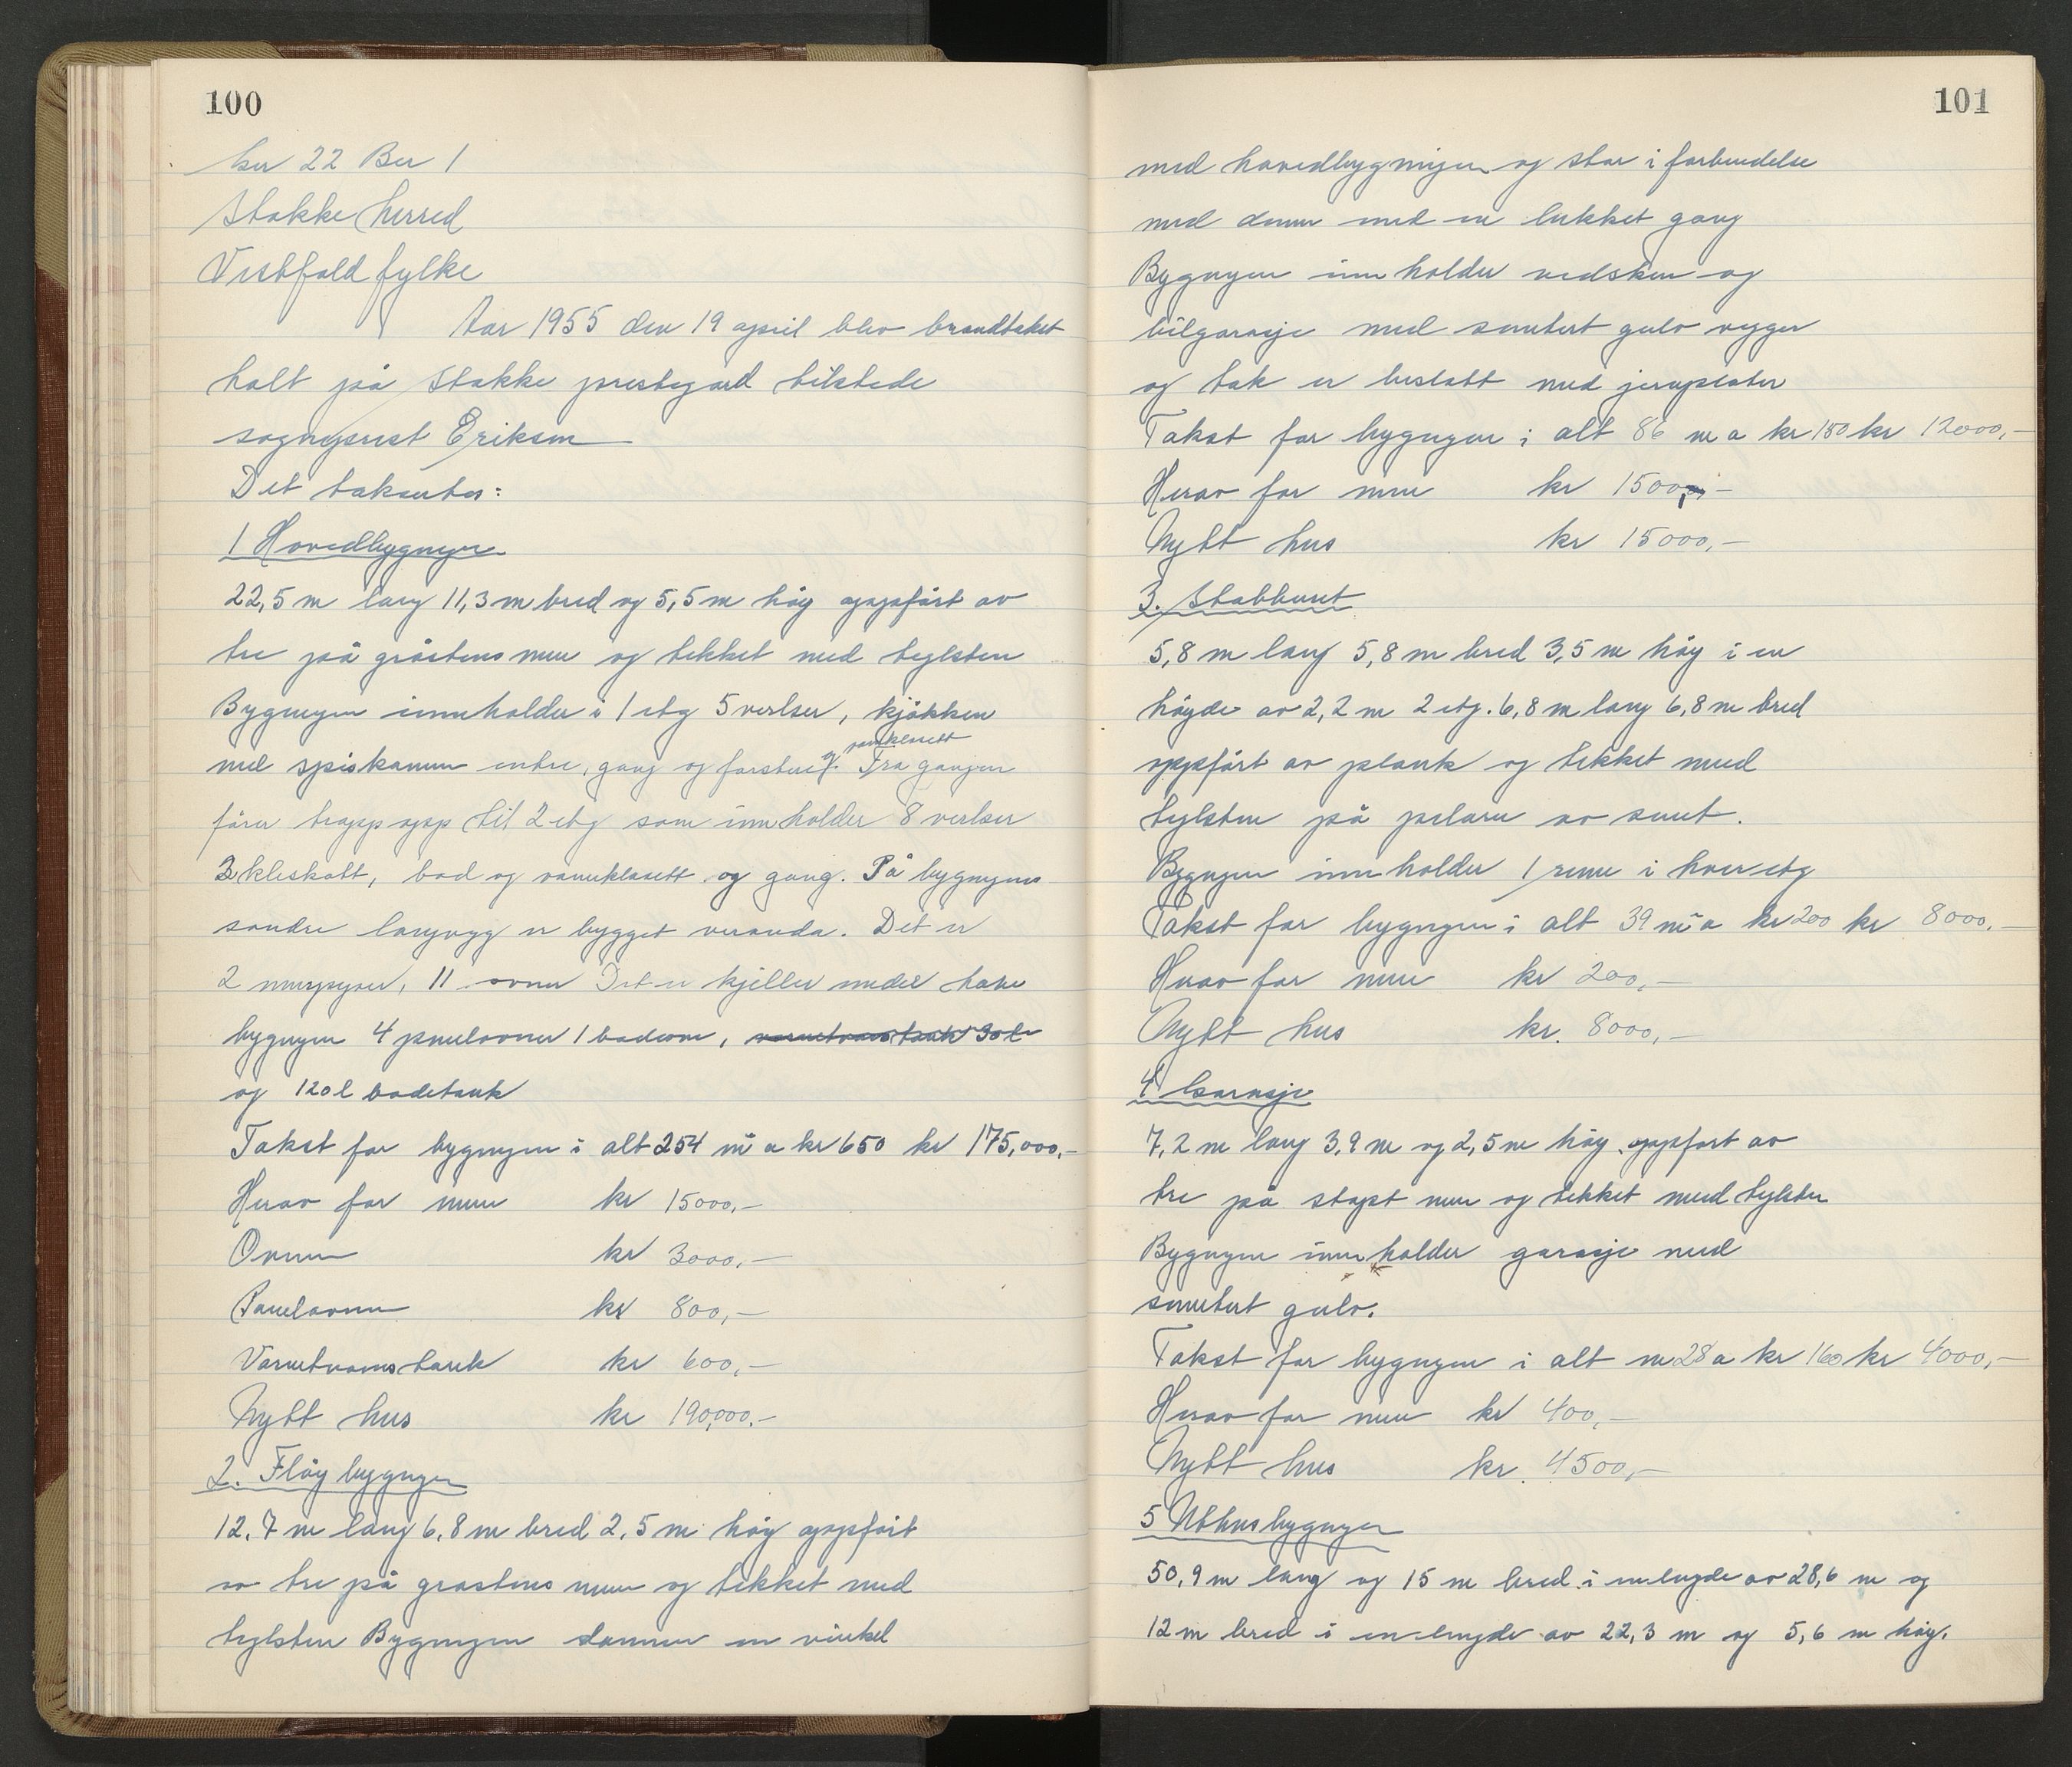 100
Gnr 22 Bnr 1
Stokke herred
Vestfold fylke
Aar 1955 den 19 april blev brandtakst
holt på Stokke prestegard tilstede
sogneprest Eriksen
Det taksertes:
1 Hovedbygngen
22,5 m lang 11,3 m bred og 5,5 m høg oppført av
tre på gråstens mur og tekket med teglsten
Bygngen innholder i 1 etg 5 verlser, kjøkken
med spiskammer entre, gang og forstue og vannklosett. Fra gangen
fører trapp opp til 2 etg som innholder 8 verlser
3 kleskott, bad og vannklosett og gang. På bygngens
søndre langveg er bygget veranda. Det er
2 murpiper, 11 ovner Det er kjeller under hele
bygngen 4 panelovner 1 badeovn, varmtvanstank 30 l
og 120 l badetank
Takst for bygngen i alt 254 m² a kr 650 kr 175,000,-
Herav for mur kr 15000,-
Ovnen kr 3000,-
Panelovnen kr 800,-
Varmtvanns tank kr 600,-
Nytt hus kr 190,000,-
2. Fløy bygngen
12,7 m lang 6,8 m bred 2,5 m høg oppført
av tre på gråstens mur og tekket med
teglsten Bygngen danner en vinkel
101
med hovedbygningen og star i forbindelse
med denne med en lukket gang
Bygngen innholder vedskur og
bilgarasje med sementert gulv vegger
og tak er beslått med jernplater
Takst for bygngen i alt 86 m a kr 150 kr 12000,-
Herav for mur kr 1500,-
Nytt hus kr 15000,-
3. Stabburet
5,8 m lang 5,8 m bred 3,5 m høg i en
høgde av 2,2 m 2 etg. 6,8 m lang 6,8 m bred
oppført av plank og tekket med
teglsten på pelarer av sement.
Bygngen innholder 1 rom i hver etg
Takst for bygngen i alt 39 m² a kr 200 kr 8000,-
Herav for mur kr 200,-
Nytt hus kr. 8000,-
4 Garasje
7,2 m lang 3,9 m og 2,5 m høg oppført av
tre på støpt mur og tekket med teglsten
Bygngen innholder garasje med
sementert gulv.
Takst for bygngen i alt m 28 a kr 160 kr 4000,-
Herav for mur kr 400,-
Nytt hus kr. 4500,-
5 Uthusbygngen
50,9 m lang og 15 m bred i en lengde av 28,6 m og
12 m bred i en lengde av 22,3 m og 5,6 m høg.